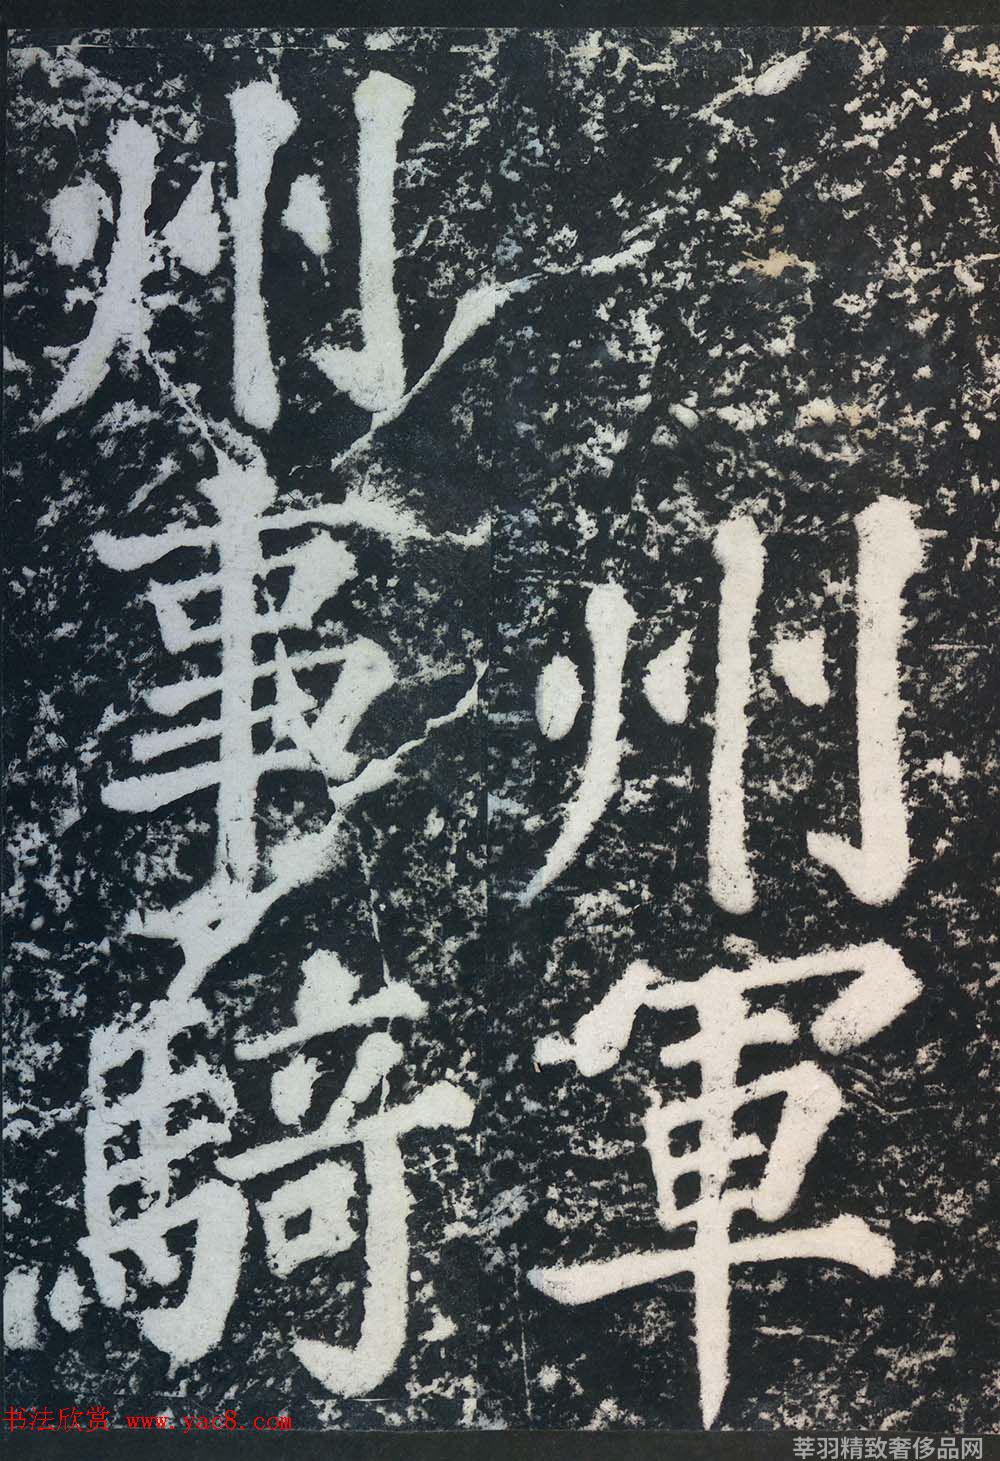 州軍
州事騎
书法欣赏 www.yac8.com
莘羽精致奢侈品网